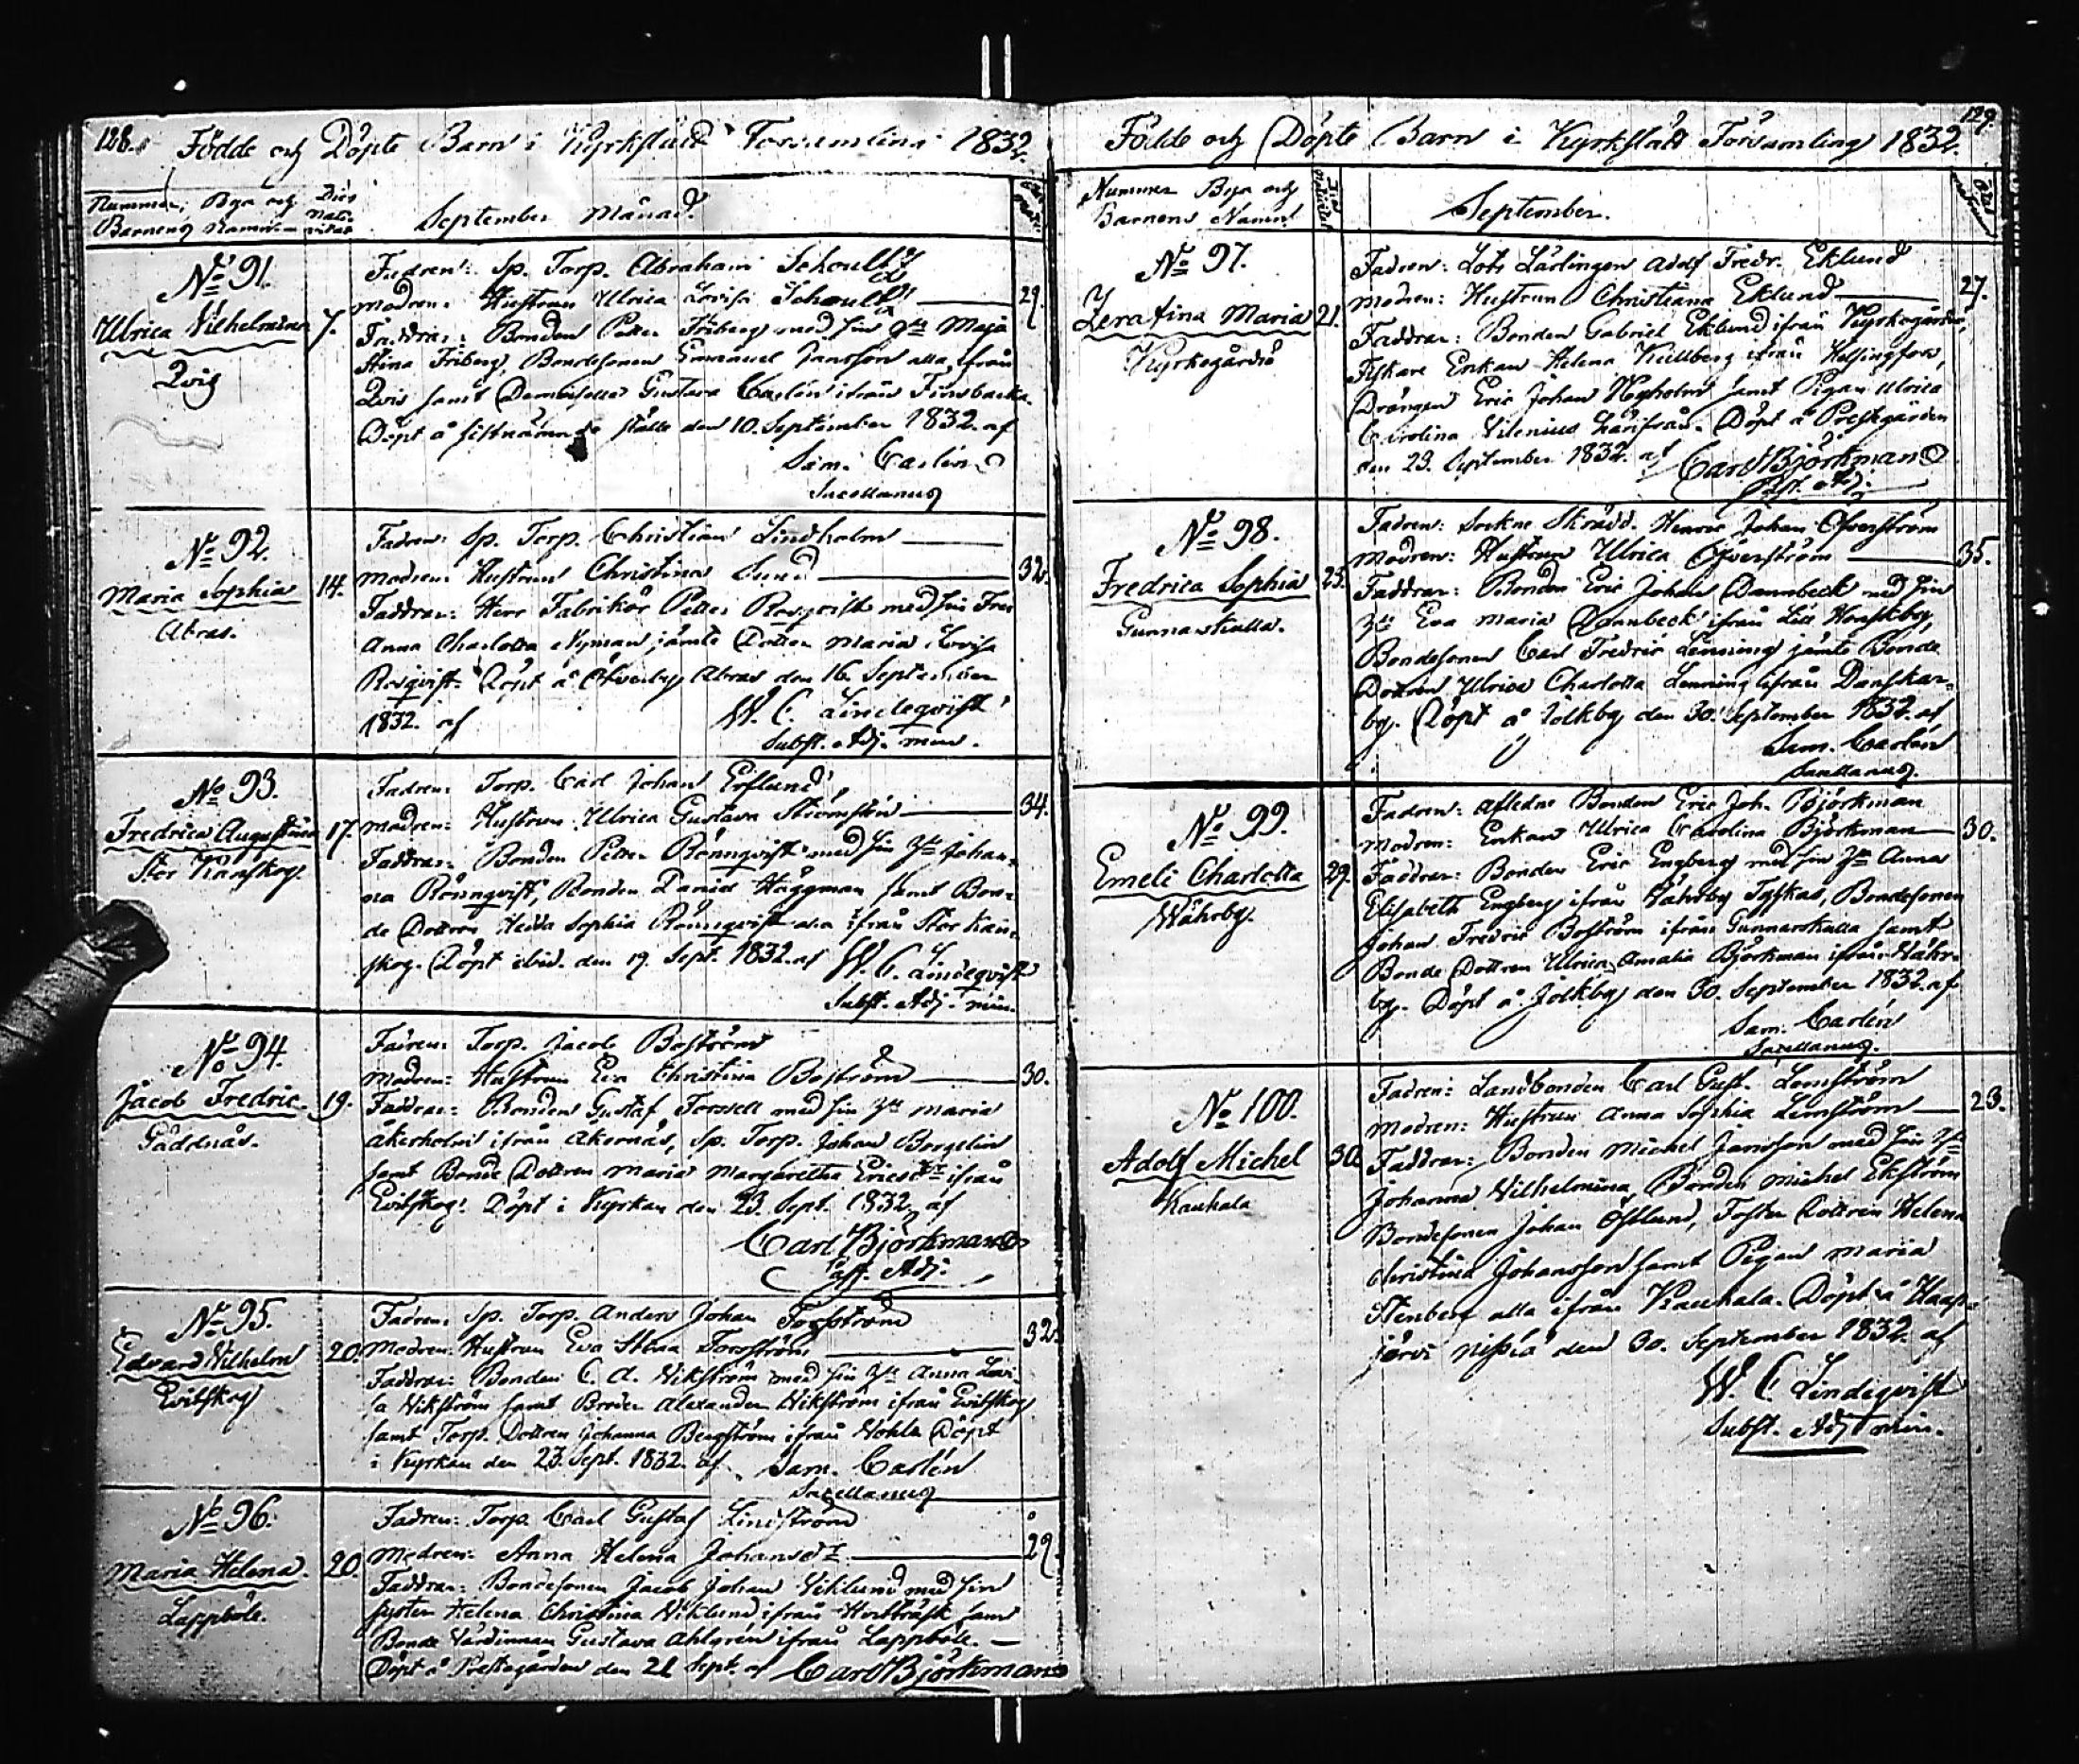 128. Födde och Döpte Barn i Kyrkslätt Församling 1832.
Nummer, Bya och Dies
Barnens Namn Nati-
vitat
September Månad.
No 91.
Ulrica Vilhelmina 7.
Qvis
Fadren: Sp. Torp. Abraham Schoultz
Modren: Hustrun Ulrica Lovisa Schoultz 29.
Faddrar: Bonden Petter Friberg med sin Hu Maja
Stina Friberg, Bondesonen Emanuel Jansson alla ifrån
Qvis samt Demoiselle Gustava Carlén ifrån Finsbacka.
Döpt å sistnämnde ställe den 10. September 1832. af
Sam. Carlén
Sacellanus
No 92.
Maria Sophia 14.
Abras.
Fadren: Sp. Torp. Christian Lindholm
Modren: Hustrun Christina Lund 32.
Faddrar: Herr Fabrikör Petter Rosqvist med sin Fru
Anna Charlotta Nyman jämte Dotter Maria Lovisa
Rosqvist. Döpt å Öfverby Abras den 16. September
1832. af W. C. Lindeqvist
Subst. Adj. min.
No 93.
Fredrica Augustina 17.
Stor Kanskog.
Fadren: Torp. Carl Johan Ecklund
Modren: Hustrun Ulrica Gustava Strömsten 34.
Faddrar: Bonden Petter Rönnqvist med sin Hu Johan-
na Rönnqvist, Bonden Daniel Häggman samt Bon-
de Dottren Hedda Sophia Rönnqvist alla ifrån Stor Kan-
skog. Döpt ibid. den 19. Sept. 1832. af W. C. Lindeqvist
Subst. Adj. min.
No 94.
Jacob Fredric. 19.
Gäddnäs.
Fadren: Torp. Jacob Boström
Modren: Hustrun Eva Christina Boström 30.
Faddrar: Bonden Gustaf Forsell med sin Hu Maria
Åkerholm ifrån Åkernäs, Sp. Torp. Johan Bergelin
samt Bonde Dottren Maria Margaretha Ericsdtr ifrån
Evitskog. Döpt i Kyrkan den 23. Sept. 1832. af
Carl Björkman
Past. Adj.
No 95.
Edvard Vilhelm 20.
Evitskog
Fadren: Sp. Torp. Anders Johan Forsström
Modren: Hustrun Eva Stina Forsström 32.
Faddrar: Bonden C. A. Wikström med sin Hu Anna Lovi-
sa Wikström samt Broder Alexander Wikström ifrån Evitskog
samt Torp. Dottren Johanna Bergström ifrån Vohls Döpt
i Kyrkan den 23. Sept. 1832. af Sam. Carlén
Sacellanus
No 96.
Maria Helena. 20.
Lappböle.
Fadren: Torp. Carl Gustaf Lindström
Modren: Anna Helena Johansdr 29.
Faddrar: Bondesonen Jacob Johan Viklund med sin
syster Helena Christina Viklund ifrån Hvitträsk samt
Bonde Värdinnan Gustava Ahlgrén ifrån Lappböle.
Döpt å Prestegården den 21 Sept. af Carl Björkman
129.
Födde och Döpte Barn i Kyrkslätt Församling 1832.
Nummer Bya och
Barnens Namn.
September.
No 97.
Zerafina Maria 21.
Kyrkogårdsö
Fadren: Lots Lärlingen Adolf Fredr. Eklund
Modren: Hustrun Christiana Eklund 27.
Faddrar: Bonden Gabriel Eklund ifrån Kyrkogårdsö,
Fiskare Enkan Helena Kullberg ifrån Helsingfors,
Drängen Eric Johan Hegholm samt Pigan Ulrica
Carolina Vilenius härifrån. Döpt å Prestgården
den 23. September 1832. af Carl Björkman
Past. Adj.
No 98.
Fredrica Sophia 23.
Gunnarskulla.
Fadren: Sockne Skrädd. Henric Johan Öfverström
Modren: Hustrun Ulrica Öfverström 35.
Faddrar: Bonden Eric Johan Dannbeck med sin
Hu Eva Maria Dannbeck ifrån Lill Honskby,
Bondesonen Carl Fredric Lenning jämte Bonde
Dottren Ulrica Charlotta Lenning ifrån Danskar-
by. Döpt å Jolkby den 30. September 1832. af
Sam. Carlén
Sacellanus.
No 99.
Emeli Charlotta 29.
Wåhrby.
Fadren: Afledne Bonden Eric Joh. Björkman
Modren: Enkan Ulrica Carolina Björkman 30.
Faddrar: Bonden Eric Engberg med sin Hu Anna
Elisabeth Engberg ifrån Wåhrby Tasskas, Bondesonen
Johan Fredric Boström ifrån Gunnarskulla samt
Bonde Dottren Ulrica Amalia Björkman ifrån Wåhr-
by. Döpt å Jolkby den 30. September 1832. af
Sam. Carlén
Sacellanus.
No 100.
Adolf Michel 30.
Kauhala
Fadren: Landbonden Carl Gust. Lemström
Modren: Hustrun Anna Sophia Lemström 23.
Faddrar: Bonden Michel Jansson med sin Hu
Johanna Vilhelmina, Bonden Michel Ekström
Bondesonen Johan Östlund, Foster Dottren Helena
Christina Johansson samt Pigan Maria
Stenberg alla ifrån Kauhala. Döpt å Haap-
järvi den 30. September 1832. af
W. C. Lindeqvist
Subst. Adj. min.